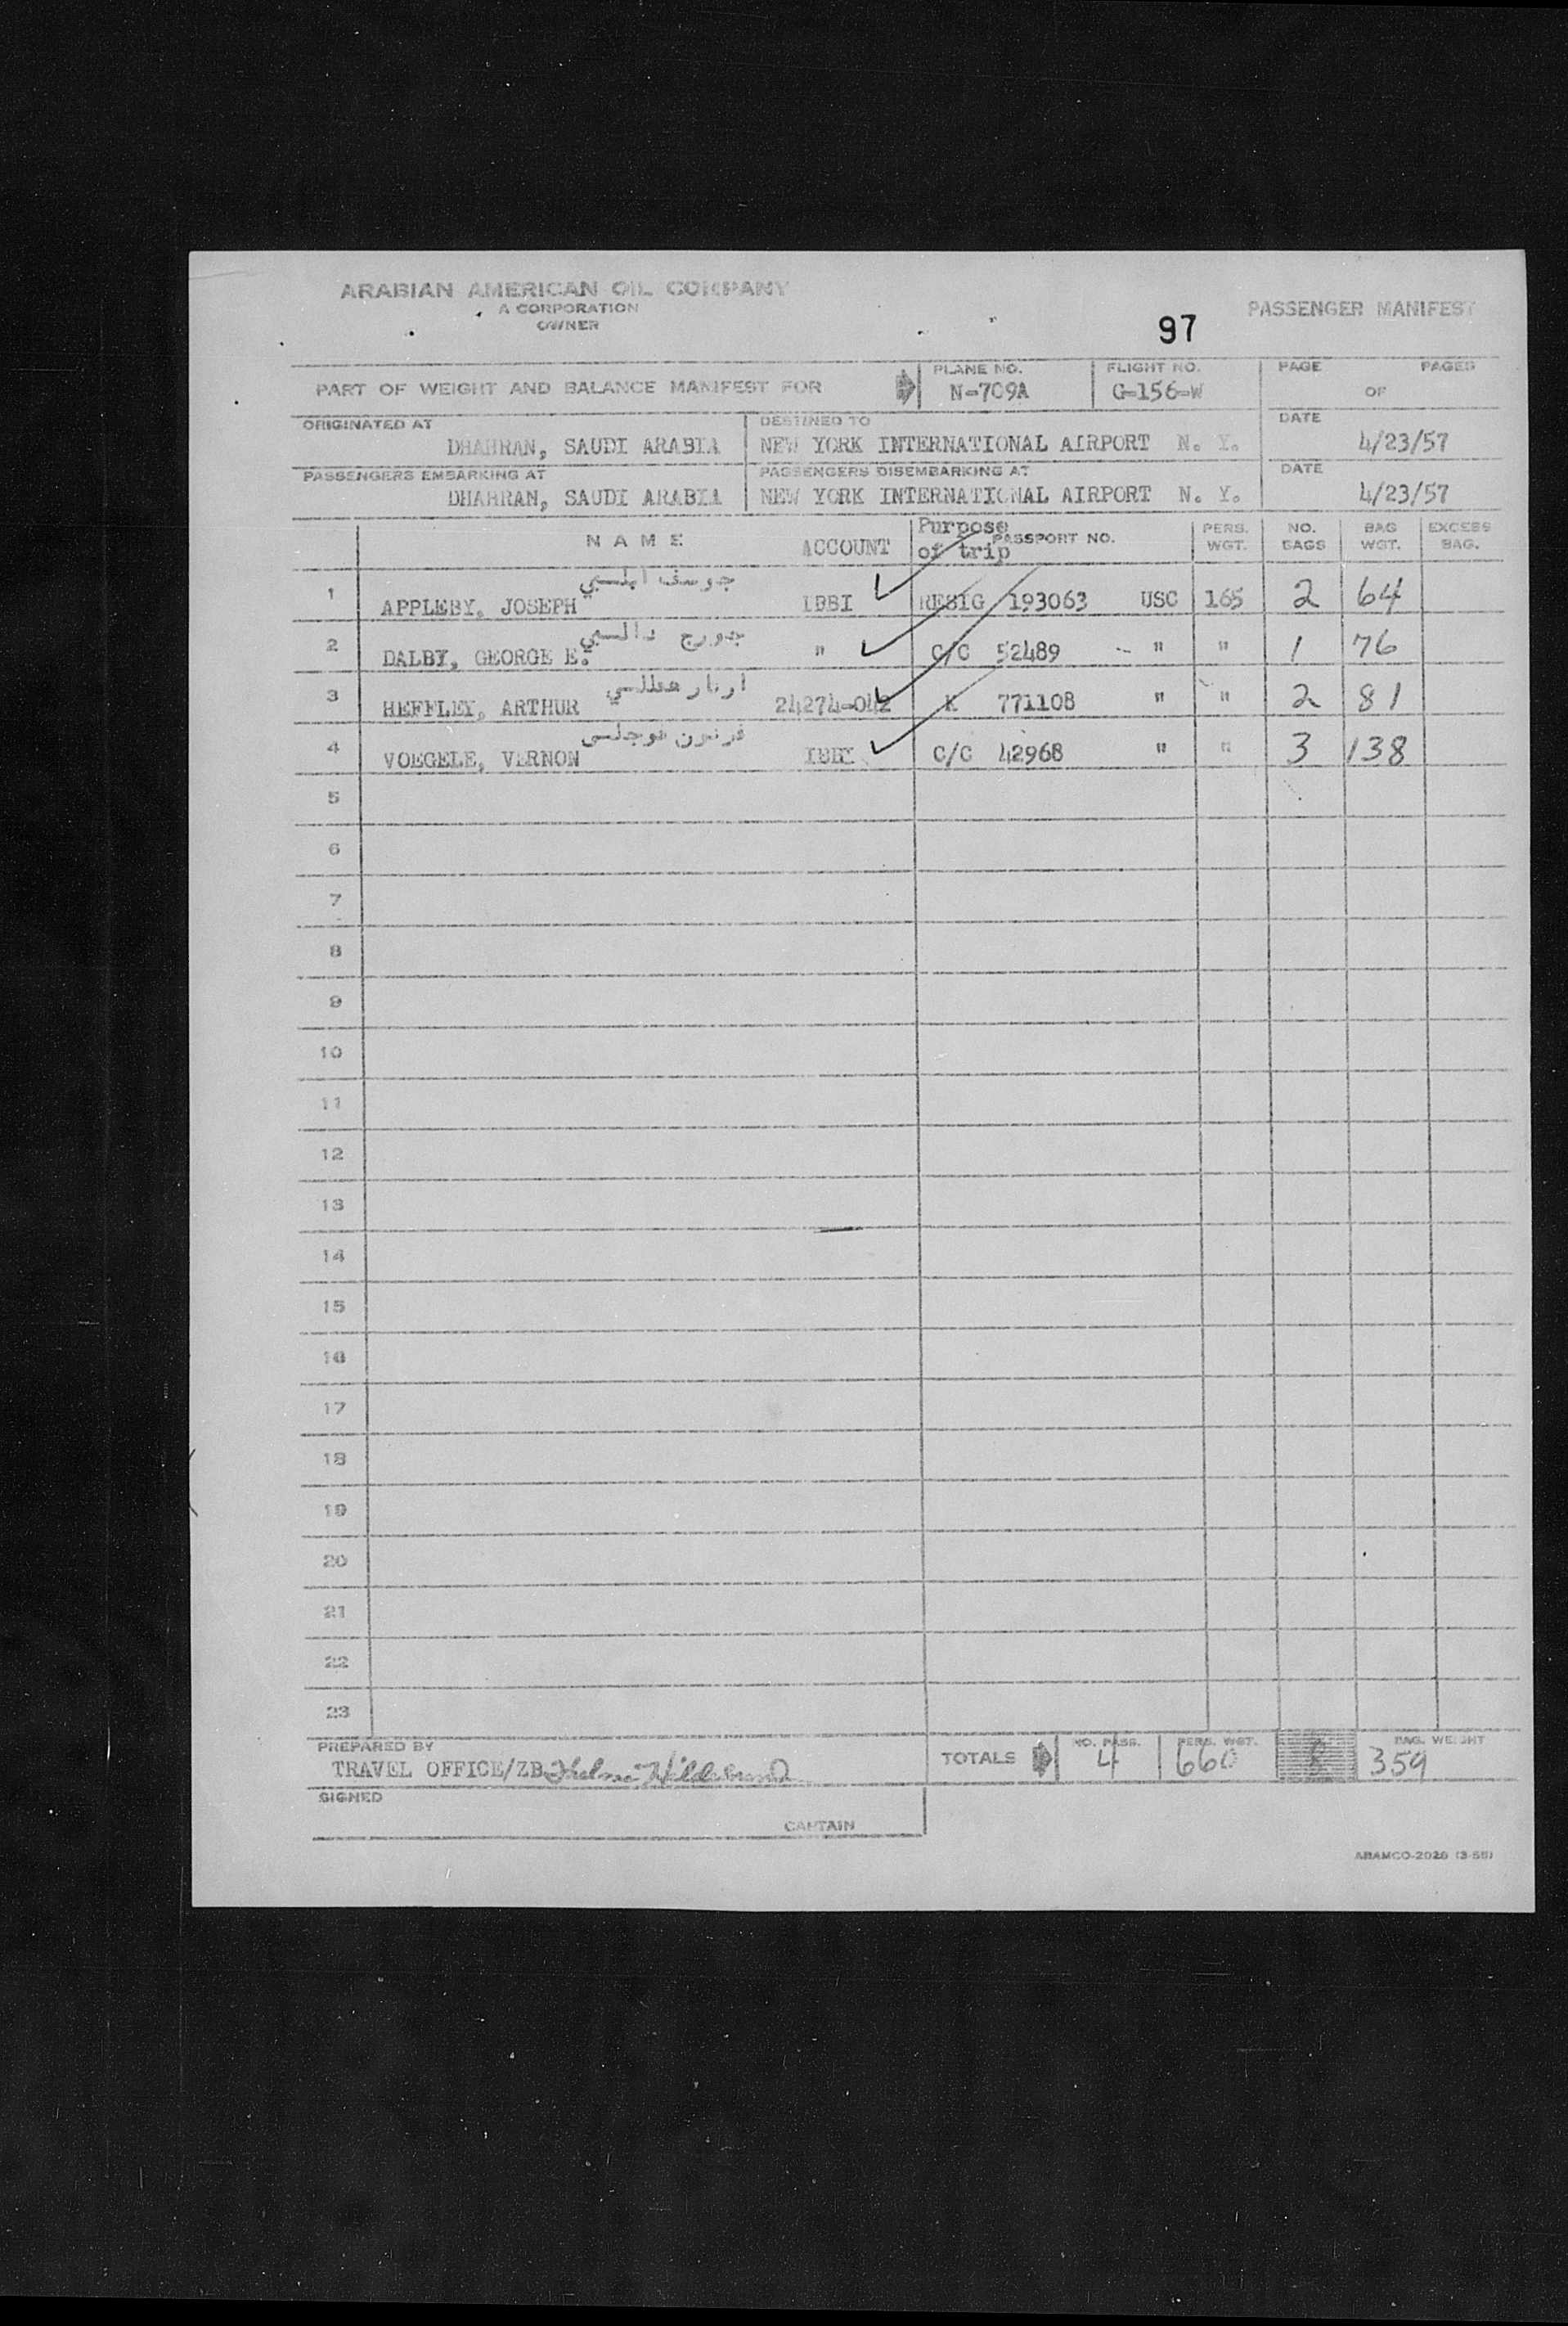 ARABIAN AMERICAN OIL COMPANY
A CORPORATION
OWNER
PASSENGER MANIFEST
97
PART OF WEIGHT AND BALANCE MANIFEST FOR
PLANE NO.
N-709A
FLIGHT NO.
G-156-W
PAGE OF PAGES
ORIGINATED AT
DHAHRAN, SAUDI ARABIA
DESTINED TO
NEW YORK INTERNATIONAL AIRPORT N. Y.
DATE
4/23/57
PASSENGERS EMBARKING AT
DHAHRAN, SAUDI ARABIA
PASSENGERS DISEMBARKING AT
NEW YORK INTERNATIONAL AIRPORT N. Y.
DATE
4/23/57
NAME ACCOUNT Purpose of trip PASSPORT NO. PERS. WGT. NO. BAGS BAG WGT. EXCESS BAG.
جوسف ابلسبي
1 APPLEBY, JOSEPH IBBI RESIG 193063 USC 165 2 64
جورج دالسبي
2 DALBY, GEORGE E. " C/C 52489 " " 1 76
3 HEFFLEY, ARTHUR 24274-042 K 771108 " " 2 81
4 VOEGELE, VERNON IBBI C/C 42968 " " 3 138
5
6
7
8
9
10
11
12
13
14
15
16
17
18
19
20
21
22
23
PREPARED BY
TRAVEL OFFICE/ZB
TOTALS
NO. PASS.
4
PERS. WGT.
660
8
BAG. WEIGHT
359
SIGNED
CAPTAIN
ARAMCO-2026 (3-55)